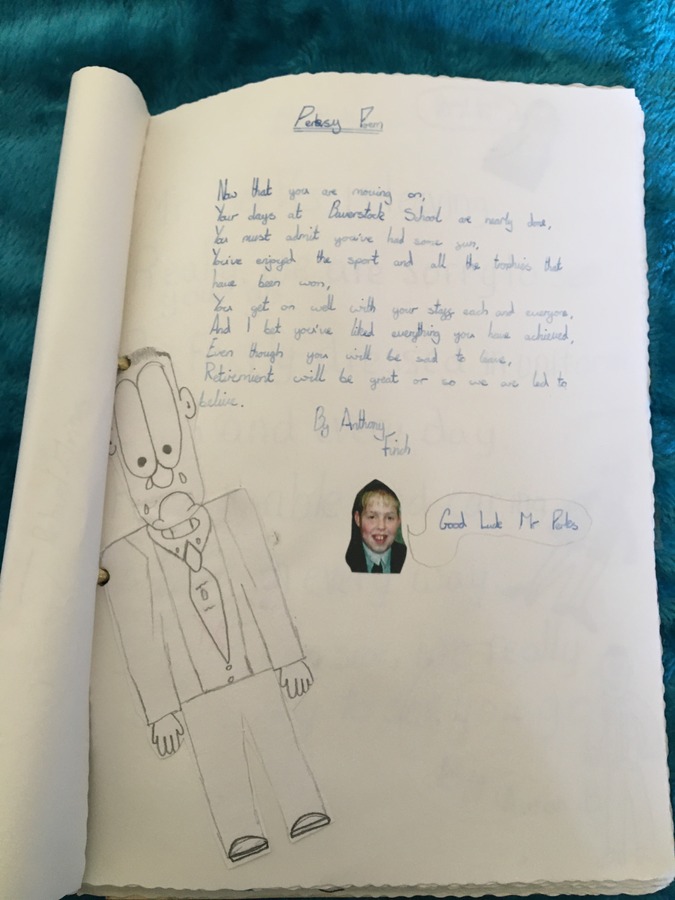 Perksy Poem
Now that you are moving on,
Your days at Baverstock School are nearly done,
You must admit you've had some fun,
You've enjoyed the sport and all the trophies that
have been won,
You get on well with your staff each and everyone,
And I bet you've liked everything you have achieved,
Even though you will be sad to leave,
Retirement will be great or so we are led to
believe.
By Anthony
Finch
Good Luck Mr Perks